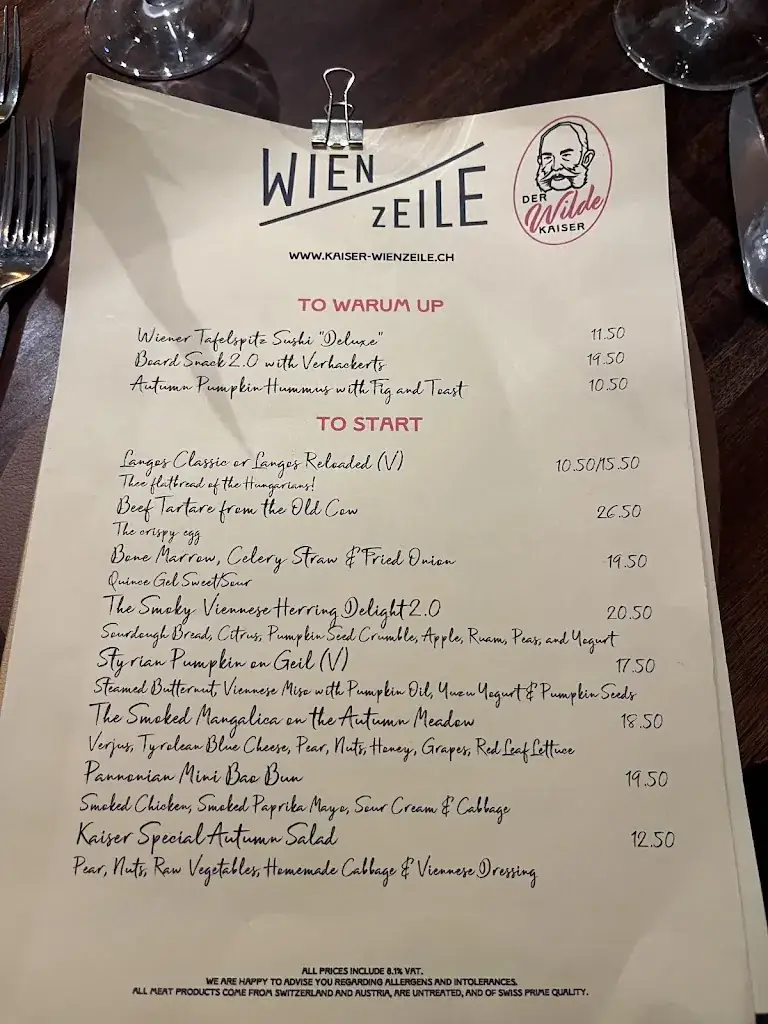 WIEN
ZEILE
DER
Wilde
KAISER
WWW.KAISER-WIENZEILE.CH
TO WARUM UP
Wiener Tafelspitz Sushi "Deluxe" 11.50
Board Snack 2.0 with Verhackerts 19.50
Autumn Pumpkin Hummus with Fig and Toast 10.50
TO START
Langos Classic or Langos Reloaded (V) 10.50/15.50
Thee flatbread of the Hungarians!
Beef Tartare from the Old Cow 26.50
The crispy egg
Bone Marrow, Celery Straw & Fried Onion 19.50
Quince Gel Sweet/Sour
The Smoky Viennese Herring Delight 2.0 20.50
Sourdough Bread, Citrus, Pumpkin Seed Crumble, Apple, Ruam, Peas, and Yogurt
Styrian Pumpkin on Geil (V) 17.50
Steamed Butternut, Viennese Miso with Pumpkin Oil, Yuzu Yogurt & Pumpkin Seeds
The Smoked Mangalica on the Autumn Meadow 18.50
Verjus, Tyrolean Blue Cheese, Pear, Nuts, Honey, Grapes, Red Leaf Lettuce
Pannonian Mini Bao Bun 19.50
Smoked Chicken, Smoked Paprika Mayo, Sour Cream & Cabbage
Kaiser Special Autumn Salad 12.50
Pear, Nuts, Raw Vegetables, Homemade Cabbage & Viennese Dressing
ALL PRICES INCLUDE 8.1% VAT.
WE ARE HAPPY TO ADVISE YOU REGARDING ALLERGENS AND INTOLERANCES.
ALL MEAT PRODUCTS COME FROM SWITZERLAND AND AUSTRIA, ARE UNTREATED, AND OF SWISS PRIME QUALITY.